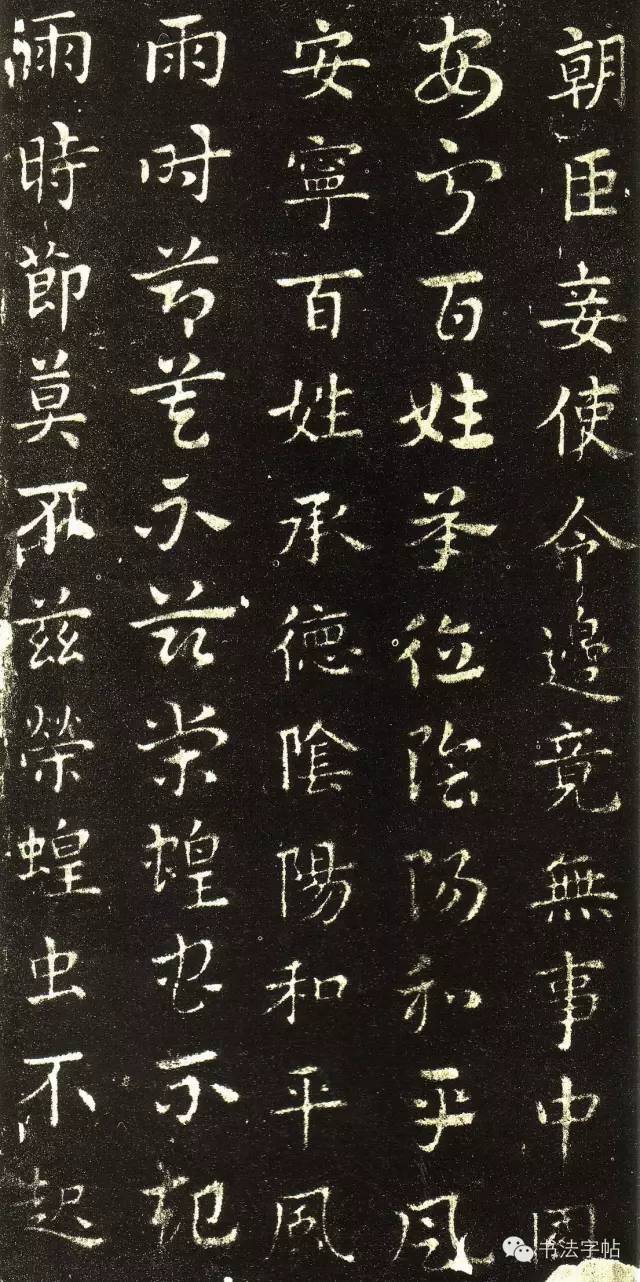 朝臣妾使令邊竟無事中国
安寧百姓承德陰陽和平風
安寧百姓承德陰陽和平風
雨時節莫不兹榮蝗虫不起
雨時節莫不兹榮蝗虫不起
书法字帖